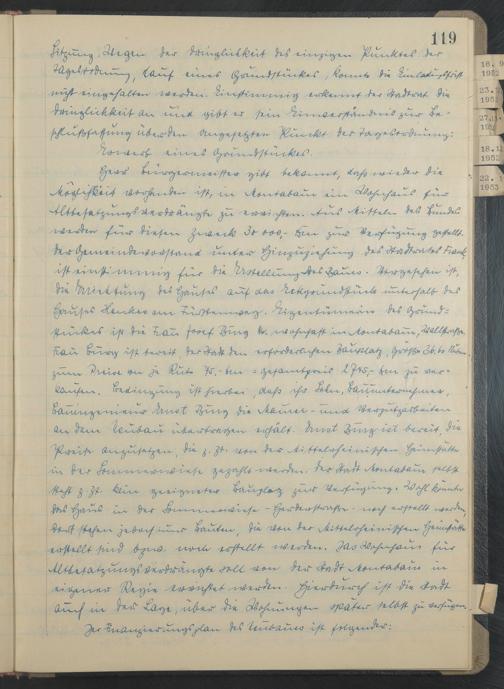 119
Sitzung. Wegen der Dringlichkeit des einzigen Punktes der
Tagesordnung, Kauf eines Grundstückes, konnte die Einladungsfrist
nicht eingehalten werden. Einstimmig erkennt der Stadtrat die
Dringlichkeit an und gibt er sein Einverständnis zur Be-
schlußfassung über den angesetzten Punkt der Tagesordnung:
Erwerb eines Grundstückes.
Herr Bürgermeister gibt bekannt, daß wieder die
Möglichkeit vorhanden ist, in Montabaur ein Wohnhaus für
Altbesatzungsverdrängte zu errichten. Aus Mitteln des Bundes
werden für diesen Zweck 30 000,- DM zur Verfügung gestellt.
Der Gemeindevorstand unter Hinzuziehung des Stadtrates
ist einstimmig für die Erstellung des Baues. Vorgesehen ist,
die Errichtung des Hauses auf das Eckgrundstück unterhalb des
Hauses am Fürstenweg. Eigentümerin des Grund-
stückes ist die Frau Josef Bürg Ww. wohnhaft in Montabaur, Wallstraße.
Frau Bürg ist bereit der Stadt den erforderlichen Bauplatz, Größe
zum Preise von je Rute 75,- DM = Gesamtpreis DM zu ver-
kaufen. Bedingung ist hierbei, daß ihr Sohn, Bauunternehmer,
Bauingenieur Ernst Bürg die Maurer- und Verputzarbeiten
an dem Neubau übertragen erhält. Ernst Bürg ist bereit, die
Preise anzusetzen, die z. Zt. von der Mittelrheinischen Heimstätte
in der Sommerwiese gezahlt werden. Der Stadt Montabaur selbst
steht z. Zt. kein geeigneter Bauplatz zur Verfügung. Wohl könnte
das Haus in der Sommerwiese - Herderstraße - noch erstellt werden,
dort stehen jedoch nur Bauten, die von der Mittelrheinischen Heimstätte
erstellt sind bzw. noch erstellt werden. Das Wohnhaus für
Altbesatzungsverdrängte soll von der Stadt Montabaur in
eigener Regie errichtet werden. Hierdurch ist die Stadt
auch in der Lage, über die Wohnungen später selbst zu verfügen.
Der Finanzierungsplan des Neubaues ist folgender:
18. 9
1952
23.
195
27.
18. 12
1952
22. 1
1953